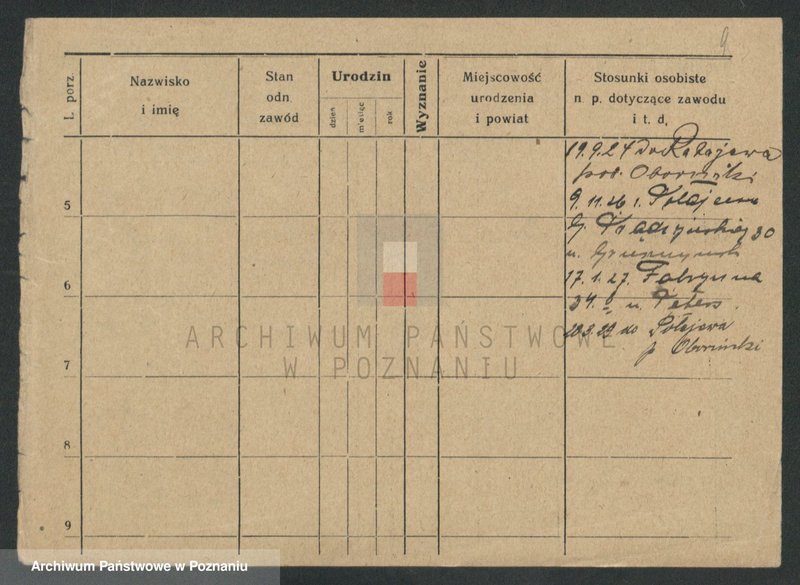 9
L. porz.
Nazwisko
i imię
Stan
odn.
zawód
Urodzin
dzień
miesiąc
rok
Wyznanie
Miejscowość
urodzenia
i powiat
Stosunki osobiste
n. p. dotyczące zawodu
i t. d.
19.9.24 do
pow. Obornicki
5
9.11.26 z
30
u.
17.1.27. Fabryczna
6
34. u. Peters
do Połajewa
p Obornicki
ARCHIWUM PAŃSTWOWE
W POZNANIU
7
8
9
Archiwum Państwowe w Poznaniu